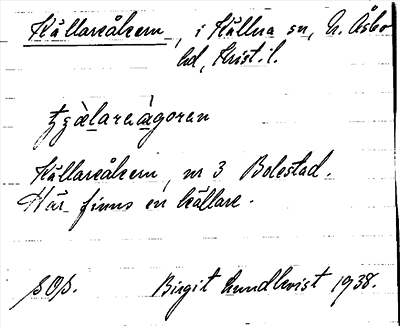 Källareåkern, i Källna sn, N. Åsbo
hd, Krist. l.
tʒälareågoran
Källareåkern, nr 3 Bolestad.
Här finns en källare.
SOS. Birgit Lundkvist 1938.